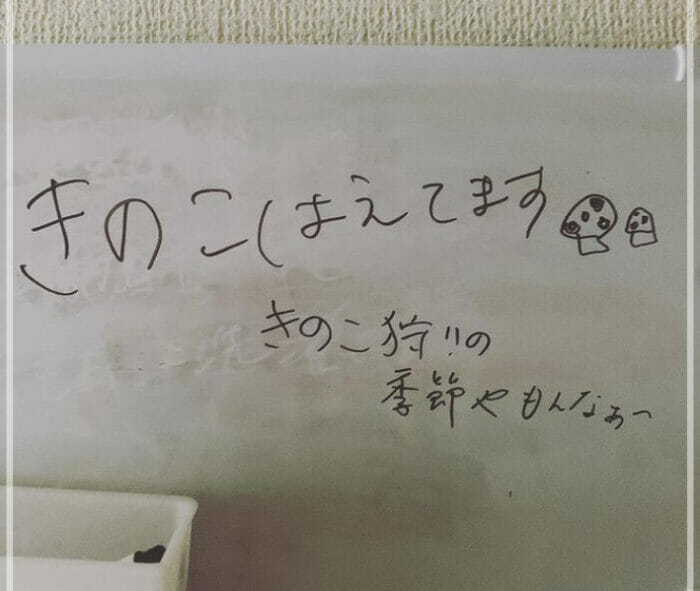 きのこはえてます
きのこ狩りの
季節やもんなぁ〜